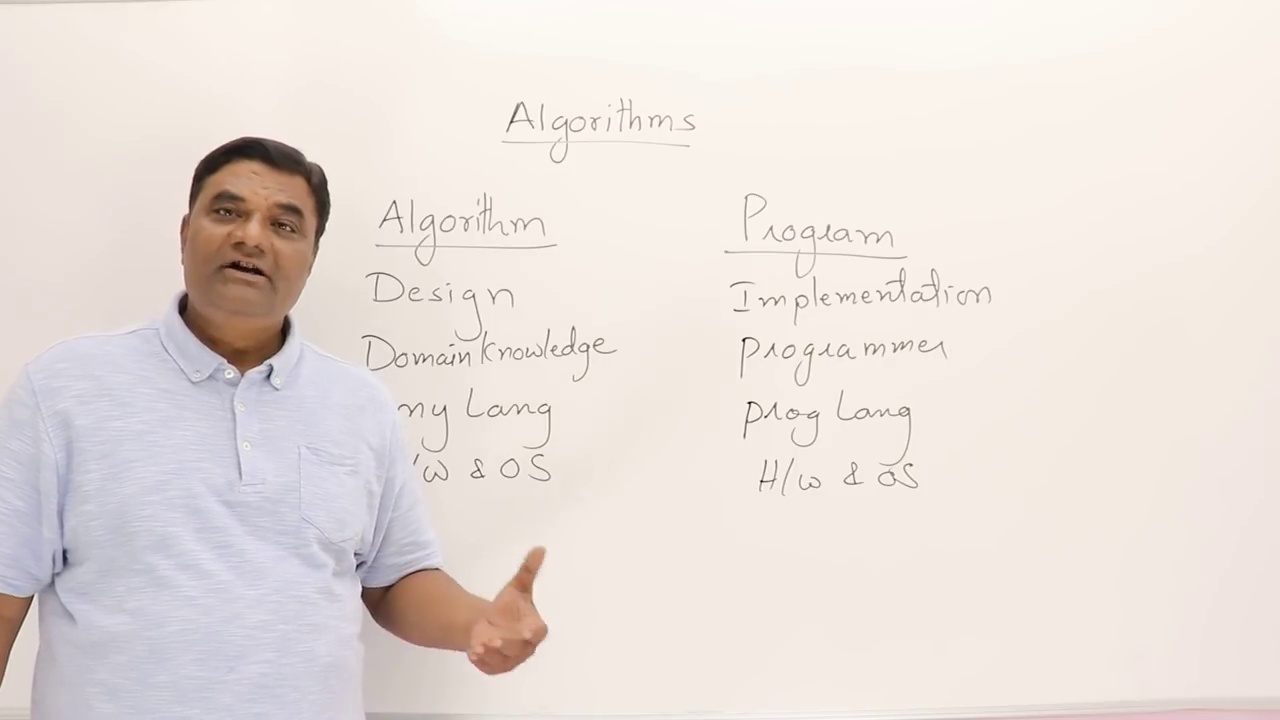 Algorithms
Algorithm
Design
Domain Knowledge
ny Lang
/w & OS
Program
Implementation
Programmer
Prog Lang
H/w & OS